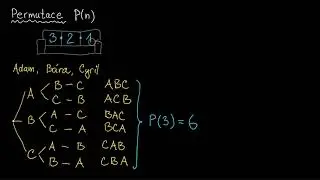 Permutace P(n)
3 · 2 · 1
Adam, Bára, Cyril
A B – C ABC
C – B ACB
B A – C BAC
C – A BCA
C A – B CAB
B – A CBA
P(3) = 6